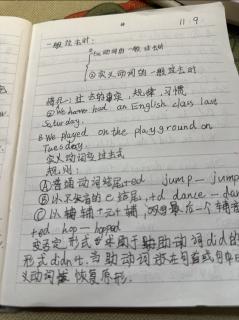 11.9
一般过去时：
①be动词的一般过去时
②实义动词的一般过去时
情况一：过去的事实，规律，习惯
We have had an English class last
Saturday.
We played on the playground on
Tuesday.
实义动词变过去式
规则：
Ⓐ普通动词结尾+ed jump— jump
Ⓑ以不发音的e结尾，+d dance—dan
Ⓒ以辅+元+辅，双写最后一个辅音
+ed hop—hopped
变否定形式要用助动词did的
形式didn't，当助动词放在句首或句中
义动词 恢复原形。